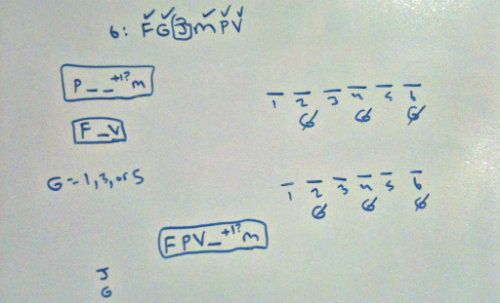 6: F G J M P V
P _ _ +1? M
_ _ _ _ _ _
1 2 3 4 5 6
G G G
F _ V
G = 1, 3, or 5
_ _ _ _ _ _
1 2 3 4 5 6
G G G
F P V _ +1? M
J
G